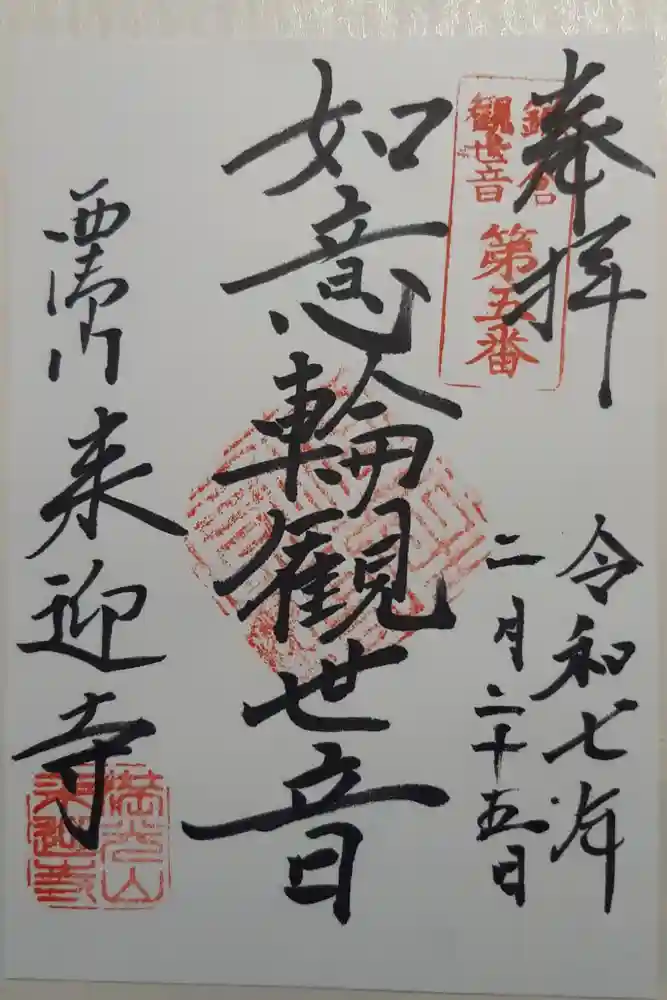 奉拝
鎌倉
観世音
第五番
令和七年
二月二十五日
如意輪観世音
西御門 来迎寺
満光山
来迎寺